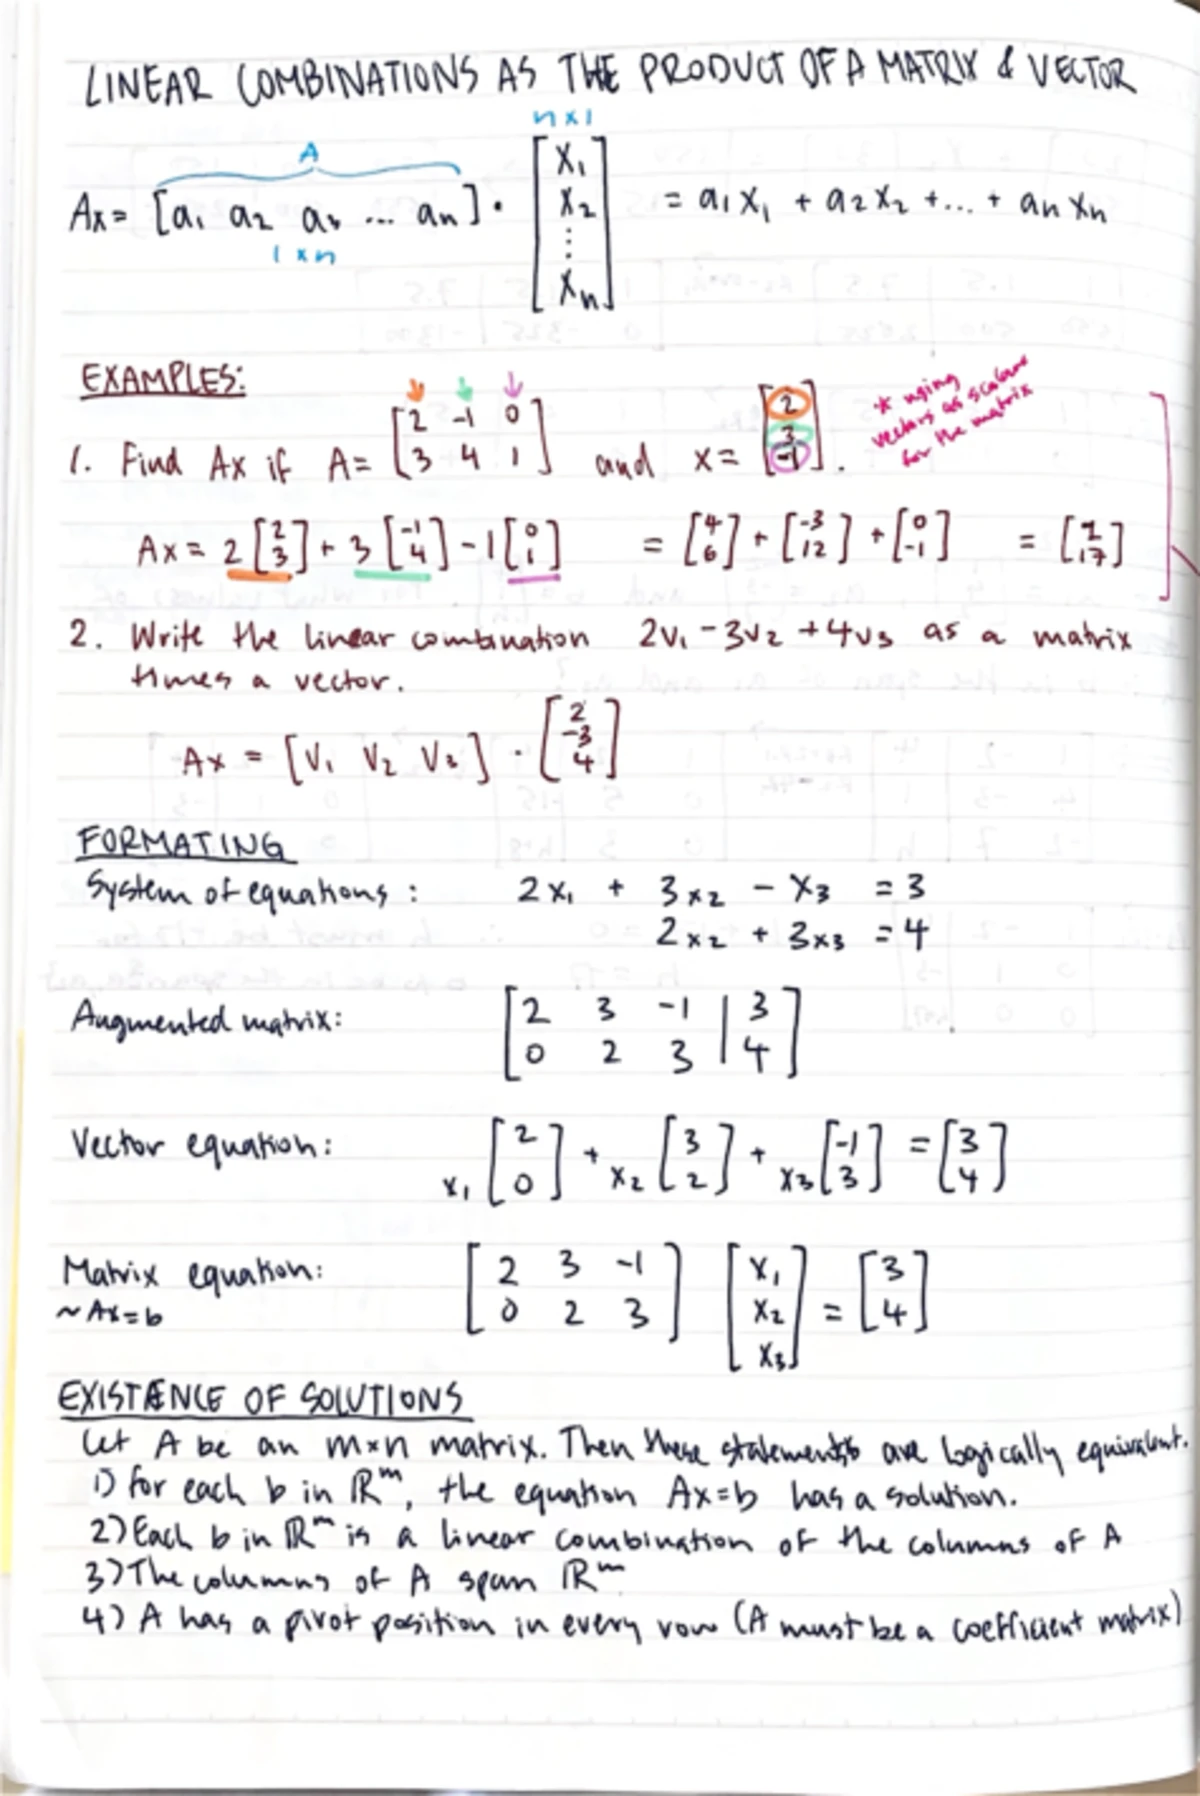 LINEAR COMBINATIONS AS THE PRODUCT OF A MATRIX & VECTOR
n x 1
A
Ax = [a1 a2 a3 ... an] · [x1 x2 ⋮ xn] = a1x1 + a2x2 + ... + anxn
1 x n
EXAMPLES:
1. Find Ax if A = [2 -1 0; 3 4 1] and x = [2; 3; -1].
* using
vectors as scalars
for the matrix
Ax = 2[2; 3] + 3[-1; 4] - 1[0; 1] = [4; 6] + [-3; 12] + [0; -1] = [1; 17]
2. Write the linear combination 2v1 - 3v2 + 4v3 as a matrix
times a vector.
Ax = [V1 V2 V3] · [2; -3; 4]
FORMATING
System of equations: 2x1 + 3x2 - x3 = 3
2x2 + 3x3 = 4
Augmented matrix: [2 3 -1 | 3; 0 2 3 | 4]
Vector equation: x1[2; 0] + x2[3; 2] + x3[-1; 3] = [3; 4]
Matrix equation: [2 3 -1; 0 2 3] [x1; x2; x3] = [3; 4]
~ Ax=b
EXISTENCE OF SOLUTIONS
Let A be an m×n matrix. Then these statements are logically equivalent.
1) for each b in ℝᵐ, the equation Ax=b has a solution.
2) Each b in ℝᵐ is a linear combination of the columns of A
3) The columns of A span ℝᵐ
4) A has a pivot position in every row (A must be a coefficient matrix)